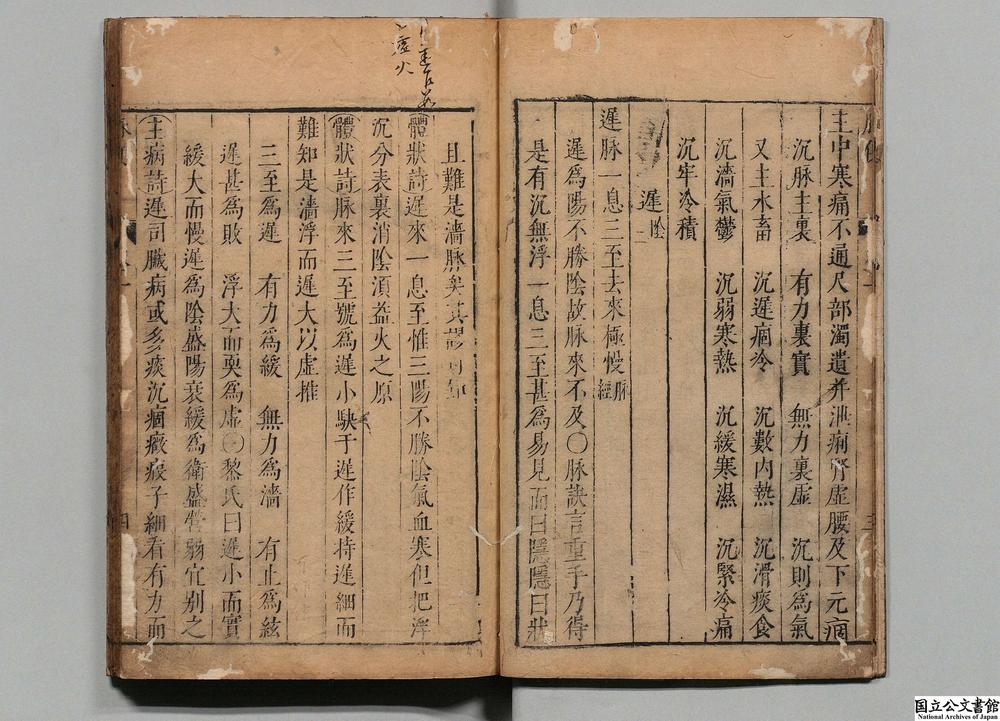 主中寒痛不通尺部濁遺并泄痢腎虛腰及下元痼
沉脉主裏 有力裏實 無力裏虛 沉則爲氣
又主水畜 沉遲痼冷 沉數內熱 沉滑痰食
沉濇氣鬱 沉弱寒熱 沉緩寒濕 沉緊冷痛
沉牢冷積
遲 陰
遲脉一息三至去來極慢 脉經
遲爲陽不勝陰故脉來不及〇脉訣言重手乃得
是有沉無浮一息三至甚爲易見而曰隱隱曰狀
且難是濇脉矣其謬可知
體狀詩遲來一息至惟三陽不勝陰氣血寒但把浮
沉分表裏消陰須益火之原
體狀詩脉來三至號爲遲小駃于遲作緩持遲細而
難知是濇浮而遲大以虛推
三至爲遲 有力爲緩 無力爲濇 有止爲結
遲甚爲敗 浮大而耎爲虛〇黎氏曰遲小而實
緩大而慢遲爲陰盛陽衰緩爲衛盛營弱宜別之
主病詩遲司臟病或多痰沉痼癥瘕子細看有力而
虛火
三
四
国立公文書館
National Archives of Japan